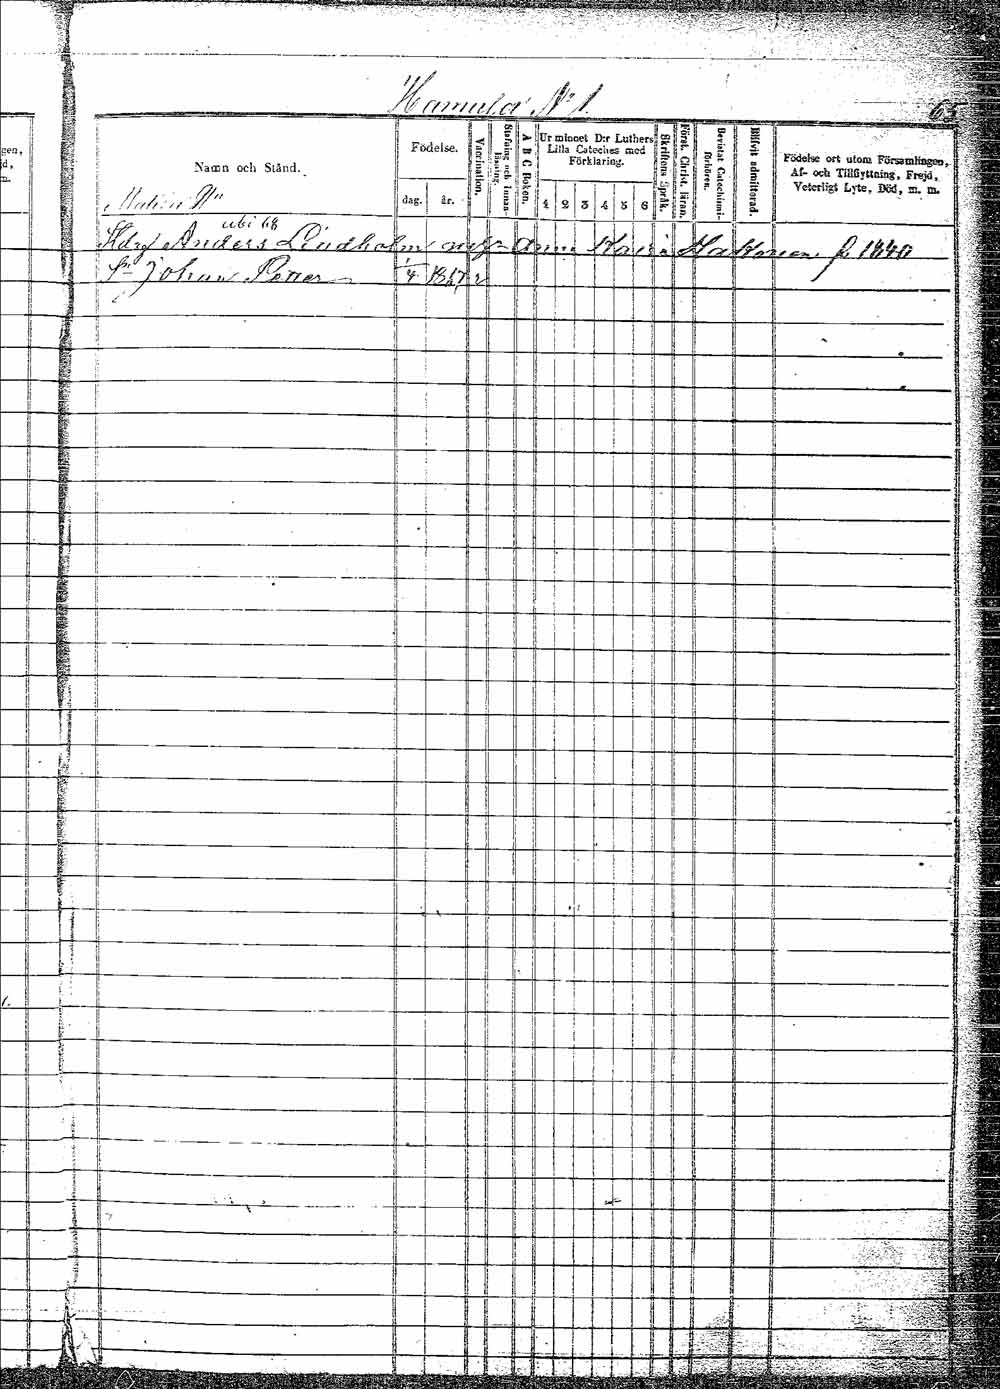 Hamula N:o 1.
65
gen,
jd,
m.
Namn och Stånd.
Födelse.
dag.
år.
Vaccination.
Stafning och Innan-
läsning.
A B C Boken.
Ur minnet D:r Luthers
Lilla Cateches med
Förklaring.
1 2 3 4 5 6
Skriftens Språk.
Först. Christ. läran.
Bevistat Catechismi-
förhören.
Blifvit admitterad.
Födelse ort utom Församlingen,
Af- och Tillflyttning, Frejd,
Veterligt Lyte, Död, m. m.
ubi 68
Anders Lindholm Anna Kaisa f. 1840
Sn Johan Petter 1/4 1867 v